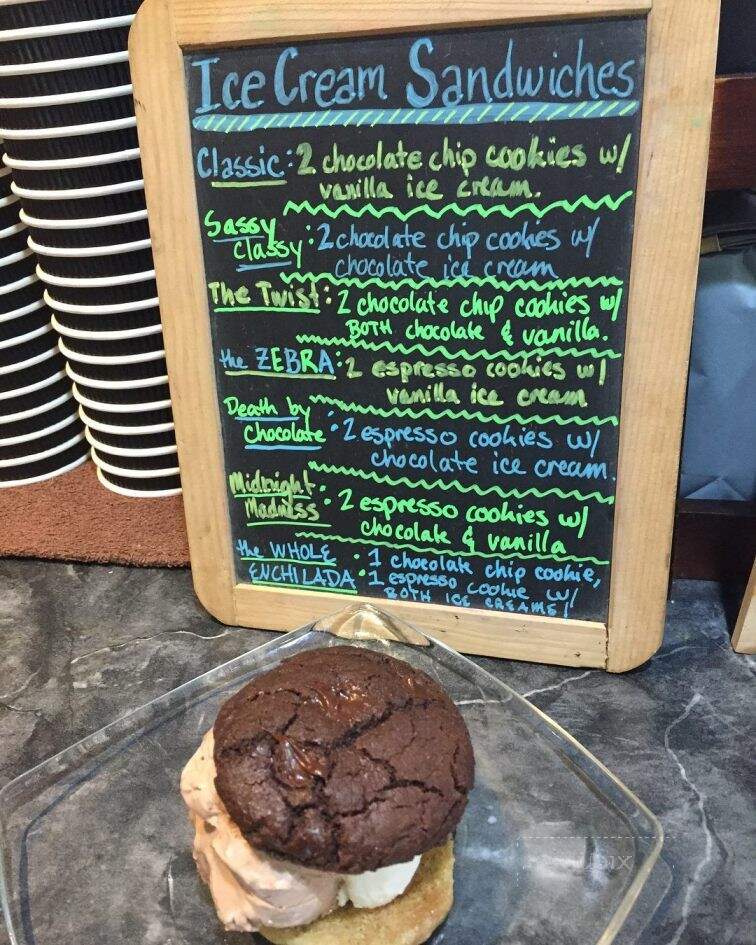 Ice Cream Sandwiches
Classic: 2 chocolate chip cookies w/
vanilla ice cream.
Sassy
Classy: 2 chocolate chip cookies w/
chocolate ice cream
The Twist: 2 chocolate chip cookies w/
BOTH chocolate & vanilla.
the ZEBRA: 2 espresso cookies w/
vanilla ice cream
Death by
Chocolate: 2 espresso cookies w/
chocolate ice cream.
Midnight
Madness: 2 espresso cookies w/
chocolate & vanilla
the WHOLE
ENCHILADA: 1 chocolate chip cookie,
1 espresso cookie w/
BOTH ICE CREAMS!